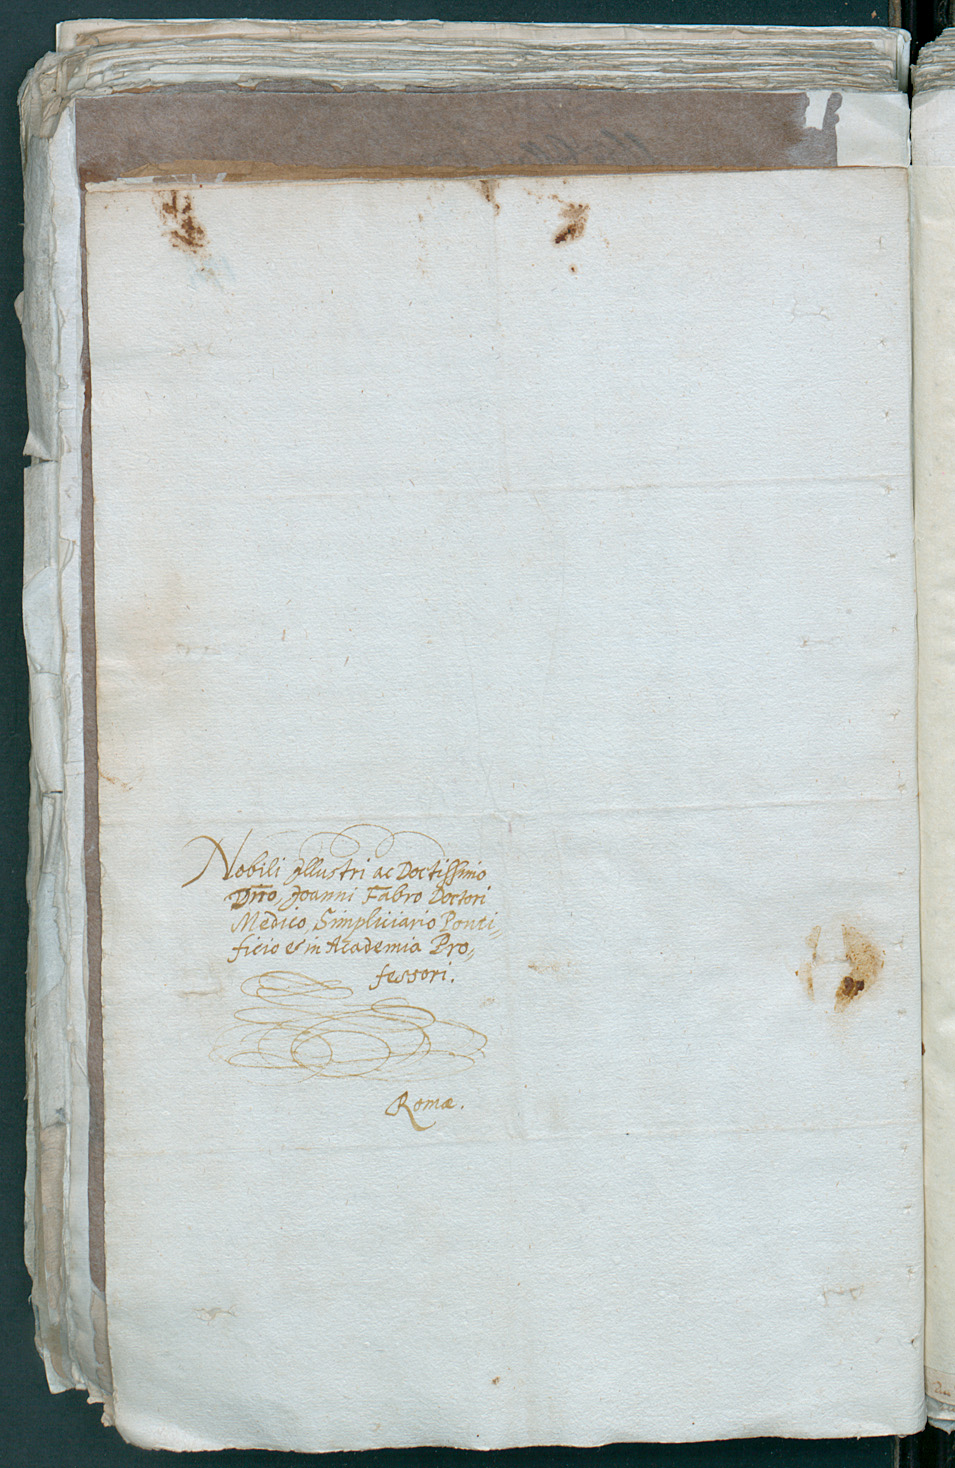 Nobili Jllustri ac Doctissimo
Dño, Joanni Fabro Doctori
Medico, Simpliciario Ponti„
ficio & in Academia Pro„
fessori.
Romæ.